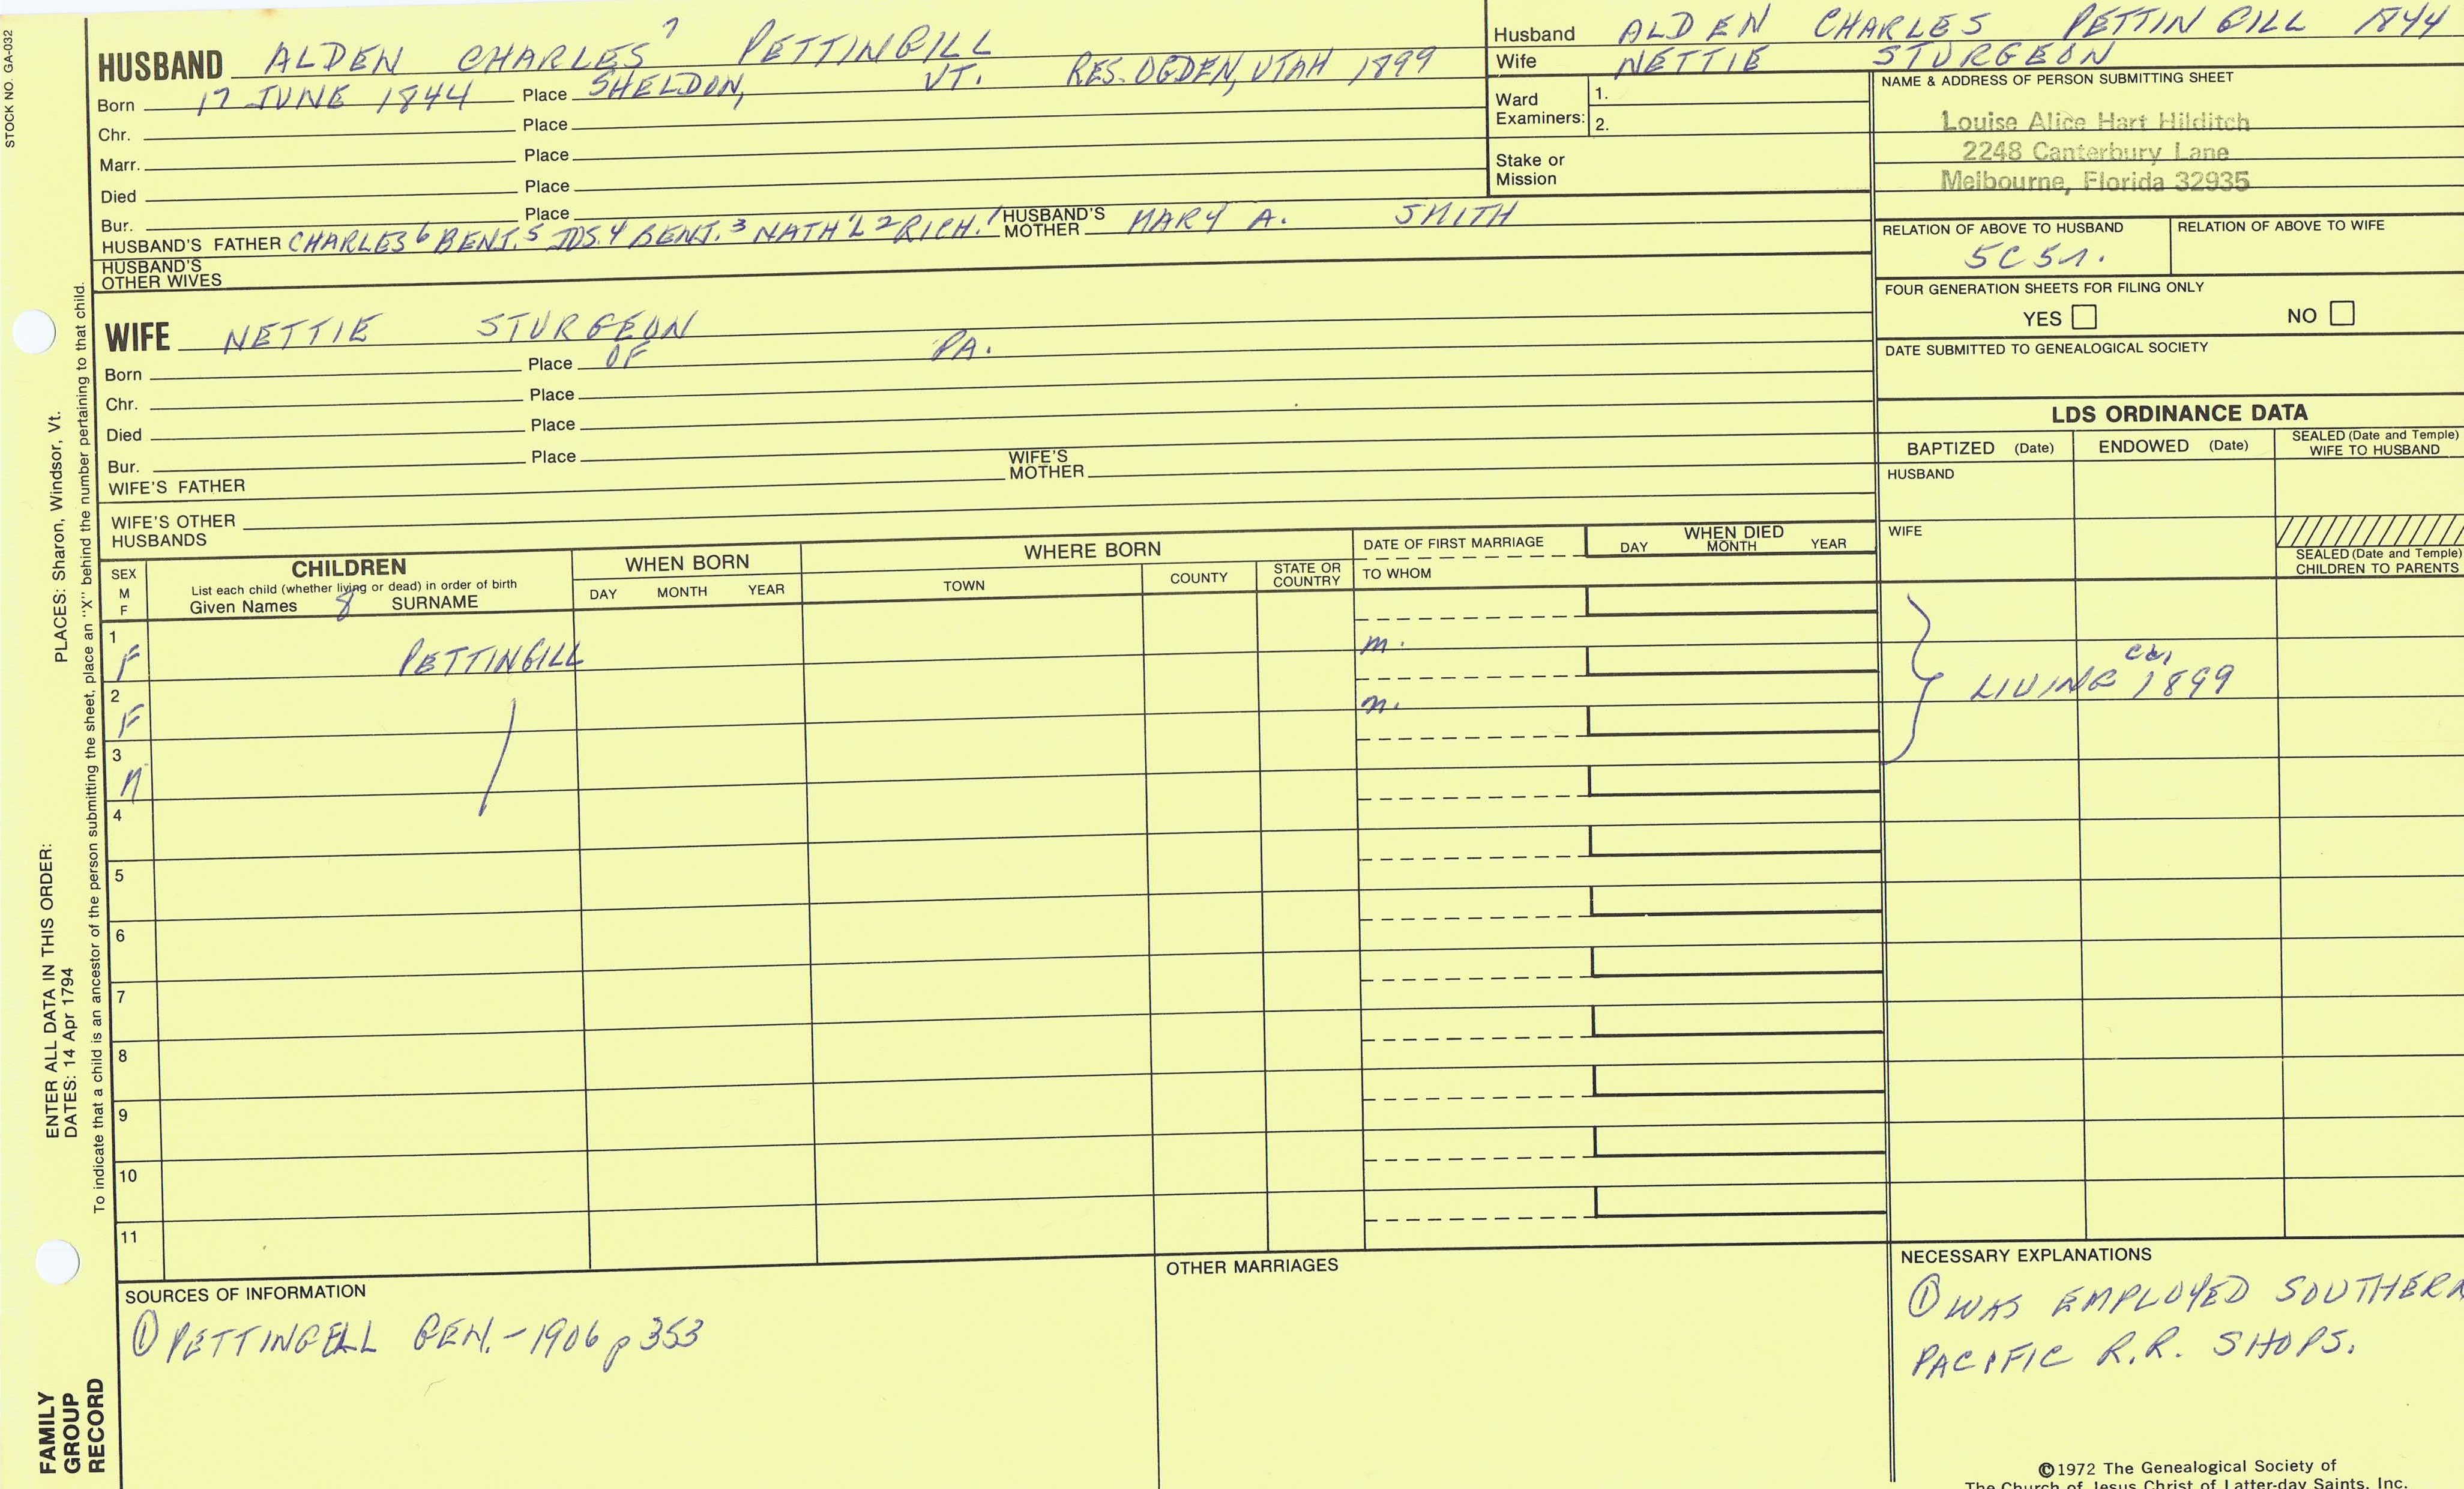 STOCK NO. GA-032
HUSBAND ALDEN CHARLES 7 PETTINGILL
Born 17 JUNE 1844 Place SHELDON, VT. RES. OGDEN, UTAH 1899
Chr. Place
Marr. Place
Died Place
Bur. Place
HUSBAND'S FATHER CHARLES 6 BENJ. 5 JOS. 4 BENJ. 3 NATH'L 2 RICH. 1 HUSBAND'S MOTHER MARY A. SMITH
HUSBAND'S OTHER WIVES
WIFE NETTIE STURGEON
Born Place OF PA.
Chr. Place
Died Place
Bur. Place
WIFE'S FATHER WIFE'S MOTHER
WIFE'S OTHER HUSBANDS
Husband ALDEN CHARLES PETTINGILL 1844
Wife NETTIE STURGEON
Ward Examiners: 1.
2.
Stake or Mission
NAME & ADDRESS OF PERSON SUBMITTING SHEET
Louise Alice Hart Hilditch
2248 Canterbury Lane
Melbourne, Florida 32935
RELATION OF ABOVE TO HUSBAND RELATION OF ABOVE TO WIFE
5C5r.
FOUR GENERATION SHEETS FOR FILING ONLY
YES NO
DATE SUBMITTED TO GENEALOGICAL SOCIETY
LDS ORDINANCE DATA
BAPTIZED (Date) ENDOWED (Date) SEALED (Date and Temple) WIFE TO HUSBAND
HUSBAND
WIFE
SEALED (Date and Temple) CHILDREN TO PARENTS
SEX M F
CHILDREN
List each child (whether living or dead) in order of birth
Given Names 8 SURNAME
WHEN BORN
DAY MONTH YEAR
WHERE BORN
TOWN COUNTY STATE OR COUNTRY
DATE OF FIRST MARRIAGE
TO WHOM
WHEN DIED
DAY MONTH YEAR
1 F PETTINGILL m.
2 F m.
3 M
LIVING 1899
4
5
6
7
8
9
10
11
SOURCES OF INFORMATION
① PETTINGELL GEN. - 1906 p 353
OTHER MARRIAGES
NECESSARY EXPLANATIONS
① WAS EMPLOYED SOUTHERN
PACIFIC R.R. SHOPS.
©1972 The Genealogical Society of
The Church of Jesus Christ of Latter-day Saints, Inc.
PLACES: Sharon, Windsor, Vt.
ENTER ALL DATA IN THIS ORDER:
DATES: 14 Apr 1794
To indicate that a child is an ancestor of the person submitting the sheet, place an "X" behind the number pertaining to that child.
FAMILY
GROUP
RECORD